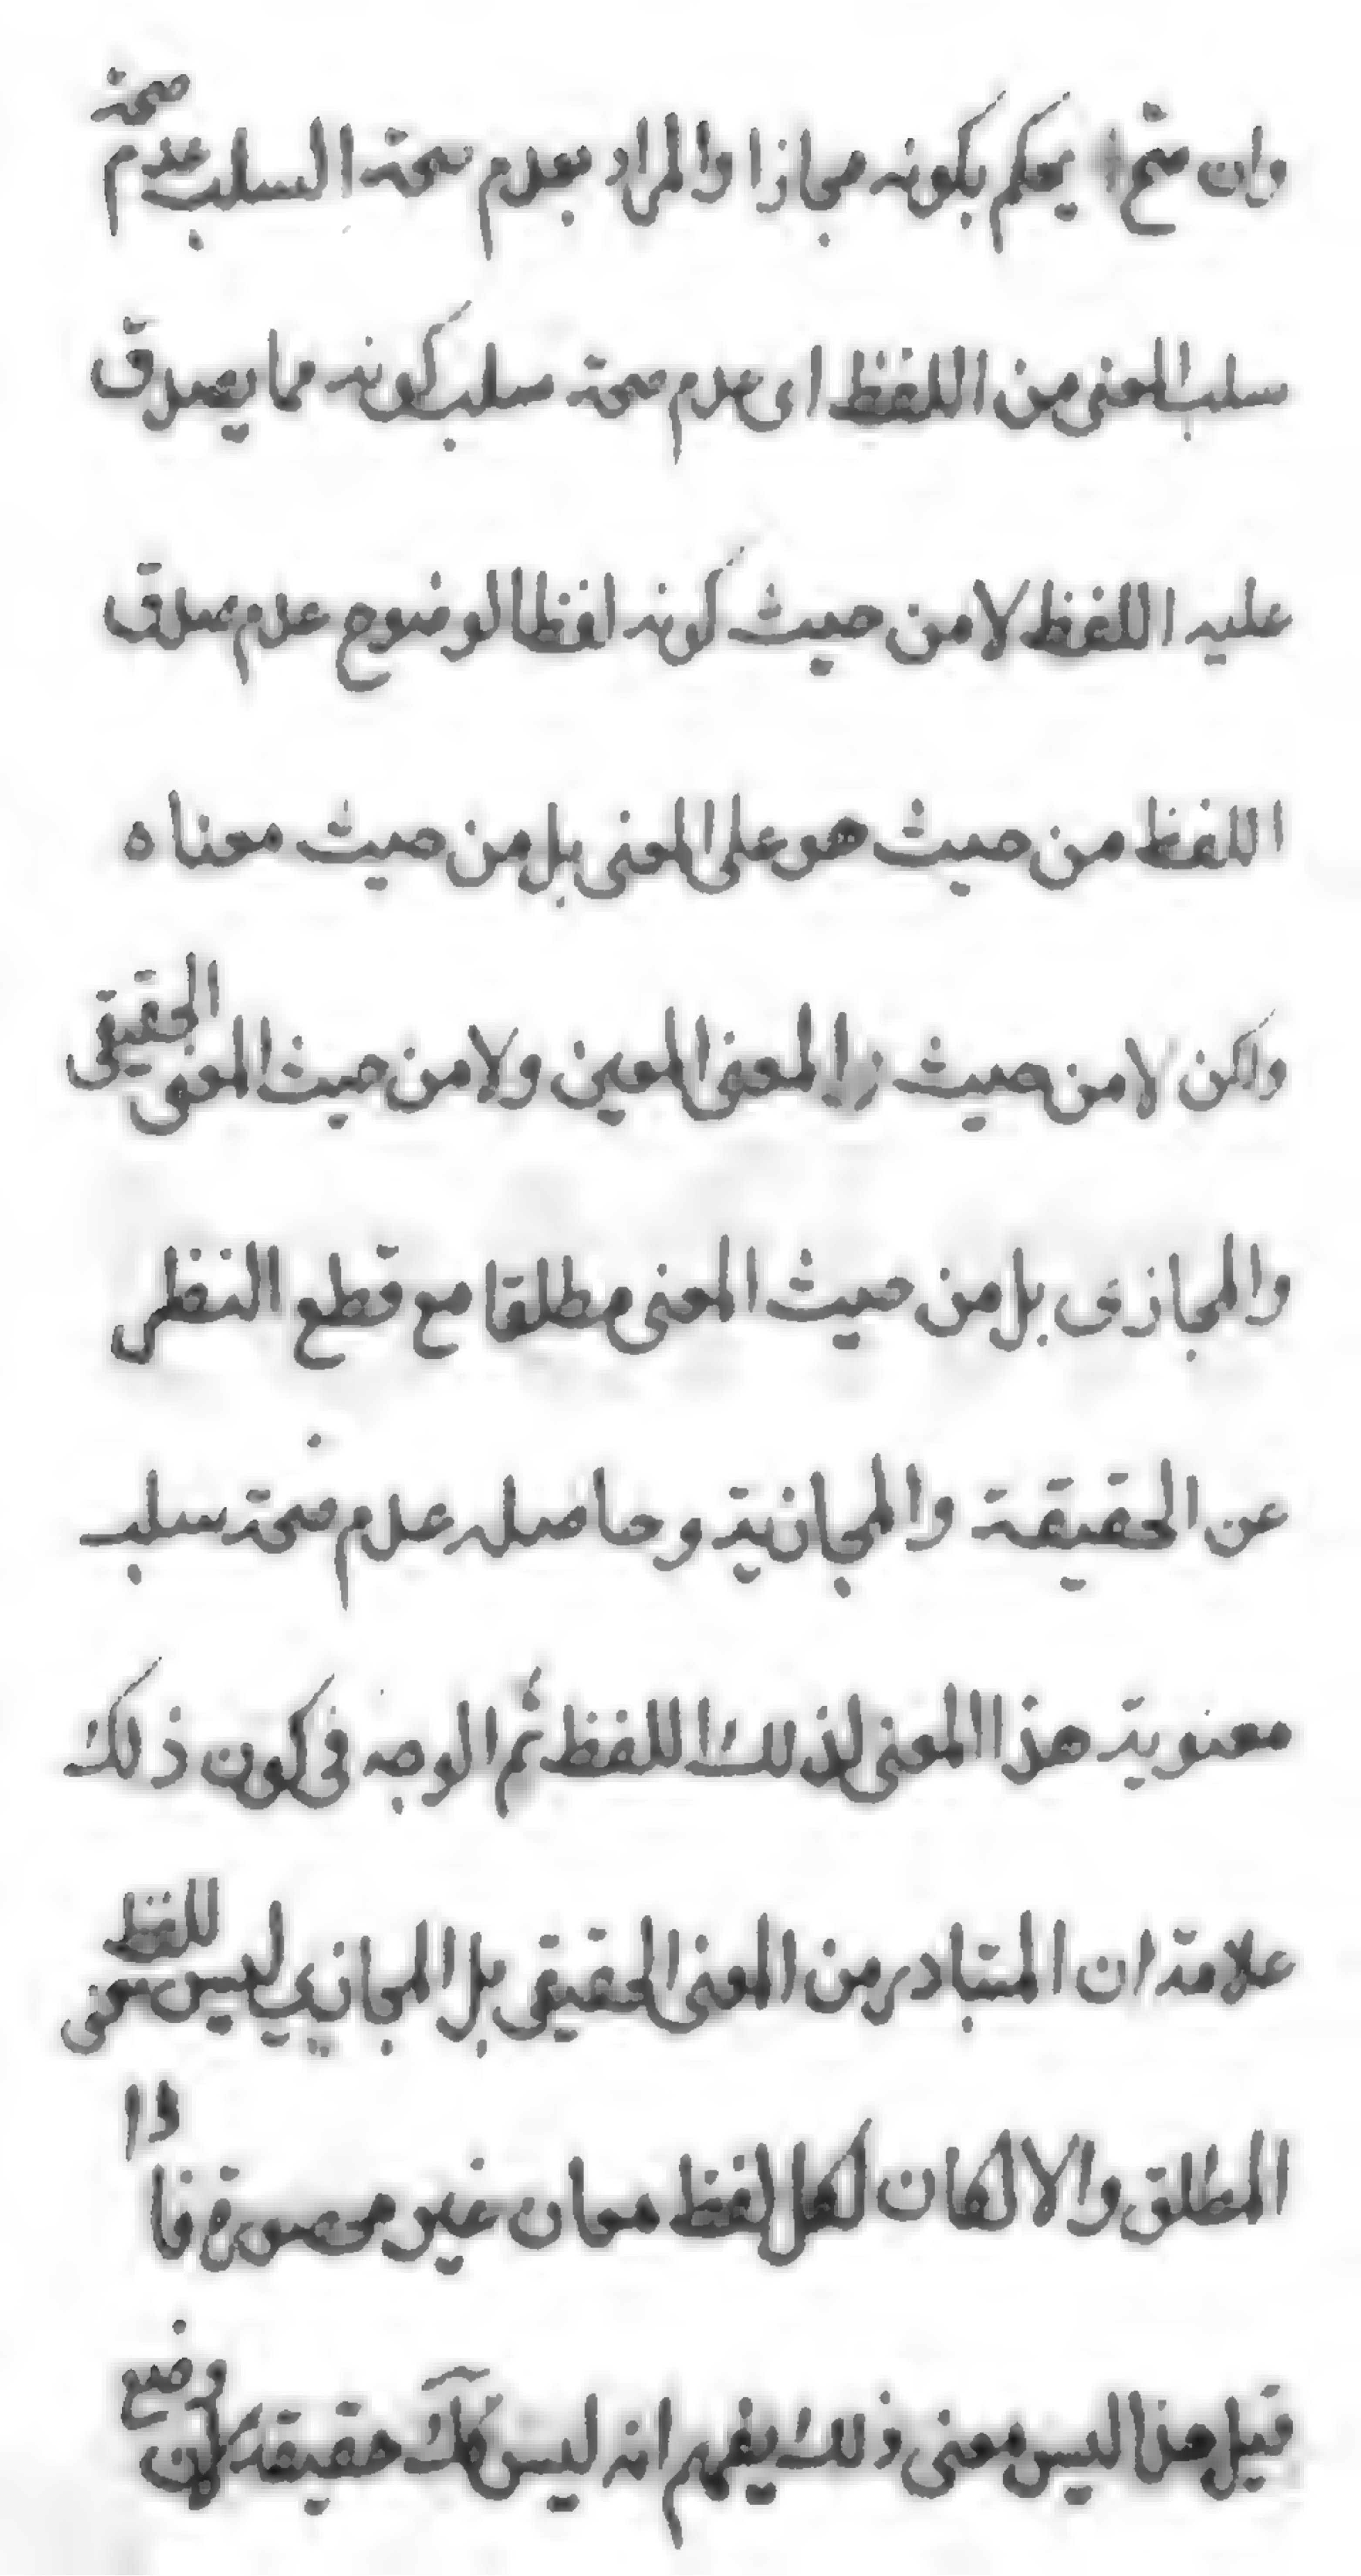 وان صح يحكم بكونه مجازا والمراد بعدم صحة السلب عدم صحة
سلب المعنى من اللفظ اى عدم صحة سلب كونه مما يصدق
عليه اللفظ لا من حيث كونه لفظا لوضوح عدم صدق
اللفظ من حيث هو على المعنى بل من حيث معناه
ولكن لا من حيث المعنى المعين ولا من حيث المعنى الحقيقى
والمجازى بل من حيث المعنى مطلقا مع قطع النظر
عن الحقيقة والمجازية وحاصله عدم صحة سلب
معنوية هذا المعنى لذلك اللفظ ثم الوجه فى كون ذلك
علامة ان المتبادر من المعنى الحقيقى بل المجازي ليس معنى للفظ
المطلق والا لكان لكل لفظ معان غير محصورة فاذا
قيل هذا ليس معنى ذلك يفهم انه ليس كك حقيقة لان وضع